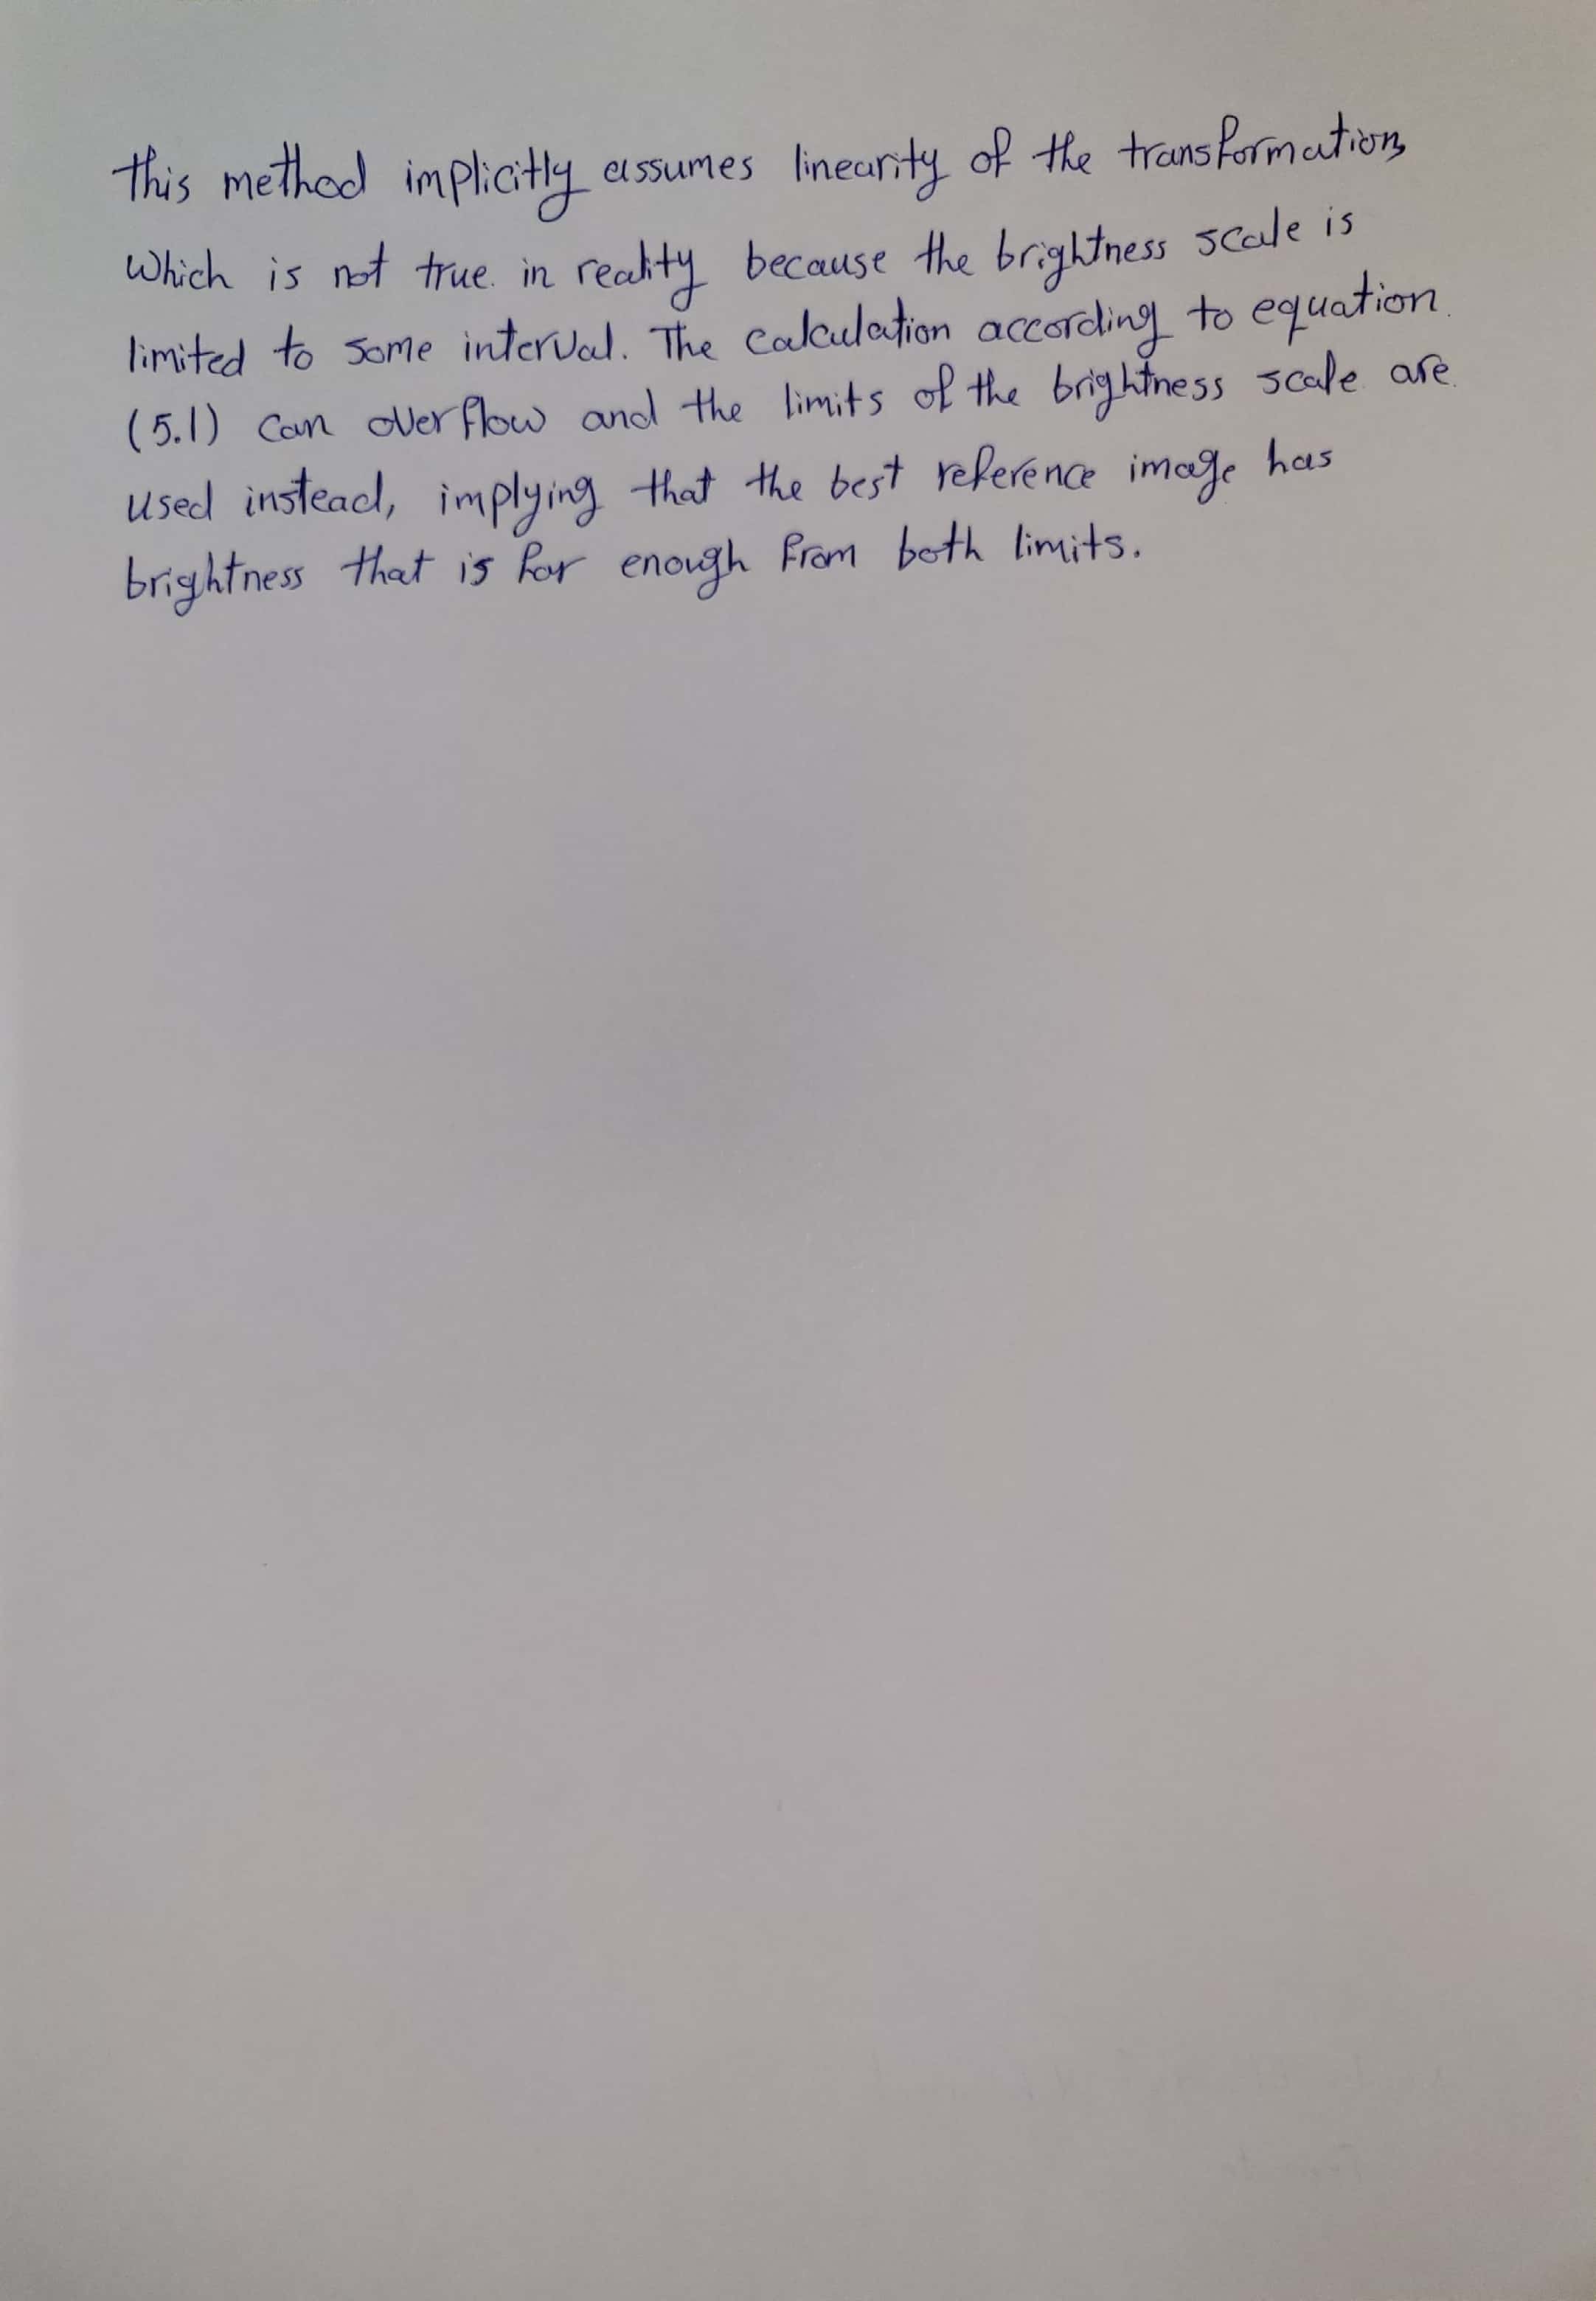 This method implicitly assumes linearity of the transformation,
which is not true in reality because the brightness scale is
limited to some interval. The calculation according to equation
(5.1) can overflow and the limits of the brightness scale are
used instead, implying that the best reference image has
brightness that is far enough from both limits.